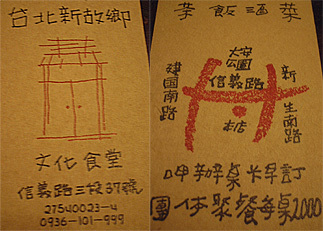 台北新故鄉
文化食堂
信義路三段37號
27540023-4
0936-101-999
飯 酒 菜
大安
公園
信義路
建国南路
新生南路
本店
呷辦桌 早訂
團体聚餐每桌2000